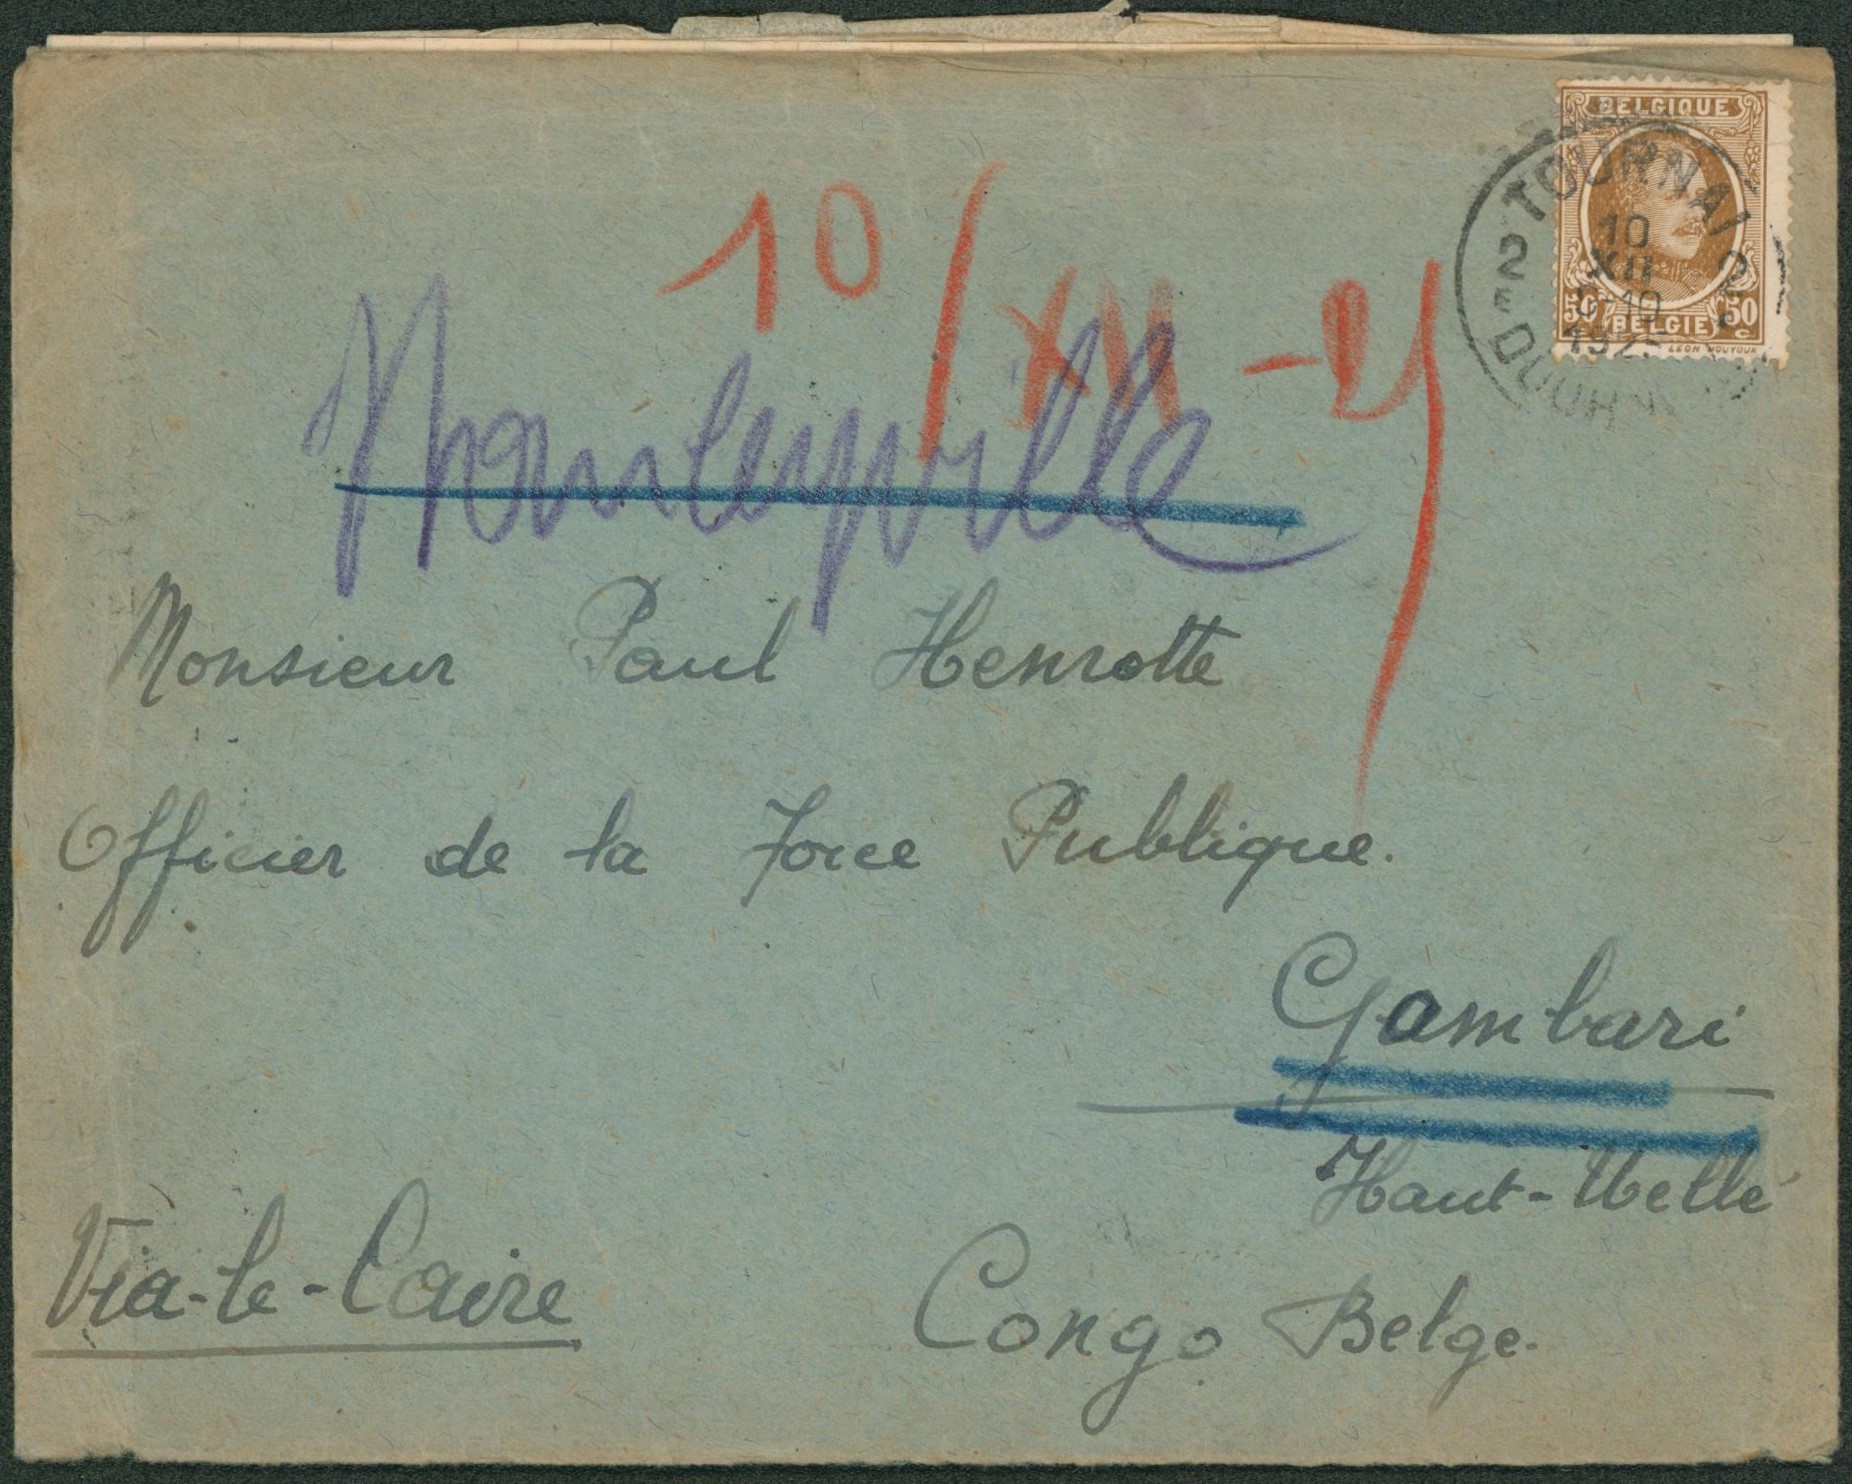 BELGIQUE
TOURNAI
2 2
10
XII
9-10
192
50 50
BELGIE
DOORN
10/XII-25
Stanleyville
Monsieur Paul Henrotte
Officier de la Force Publique.
Gambari
Haut-Uellé
Via-le-Caire
Congo Belge.